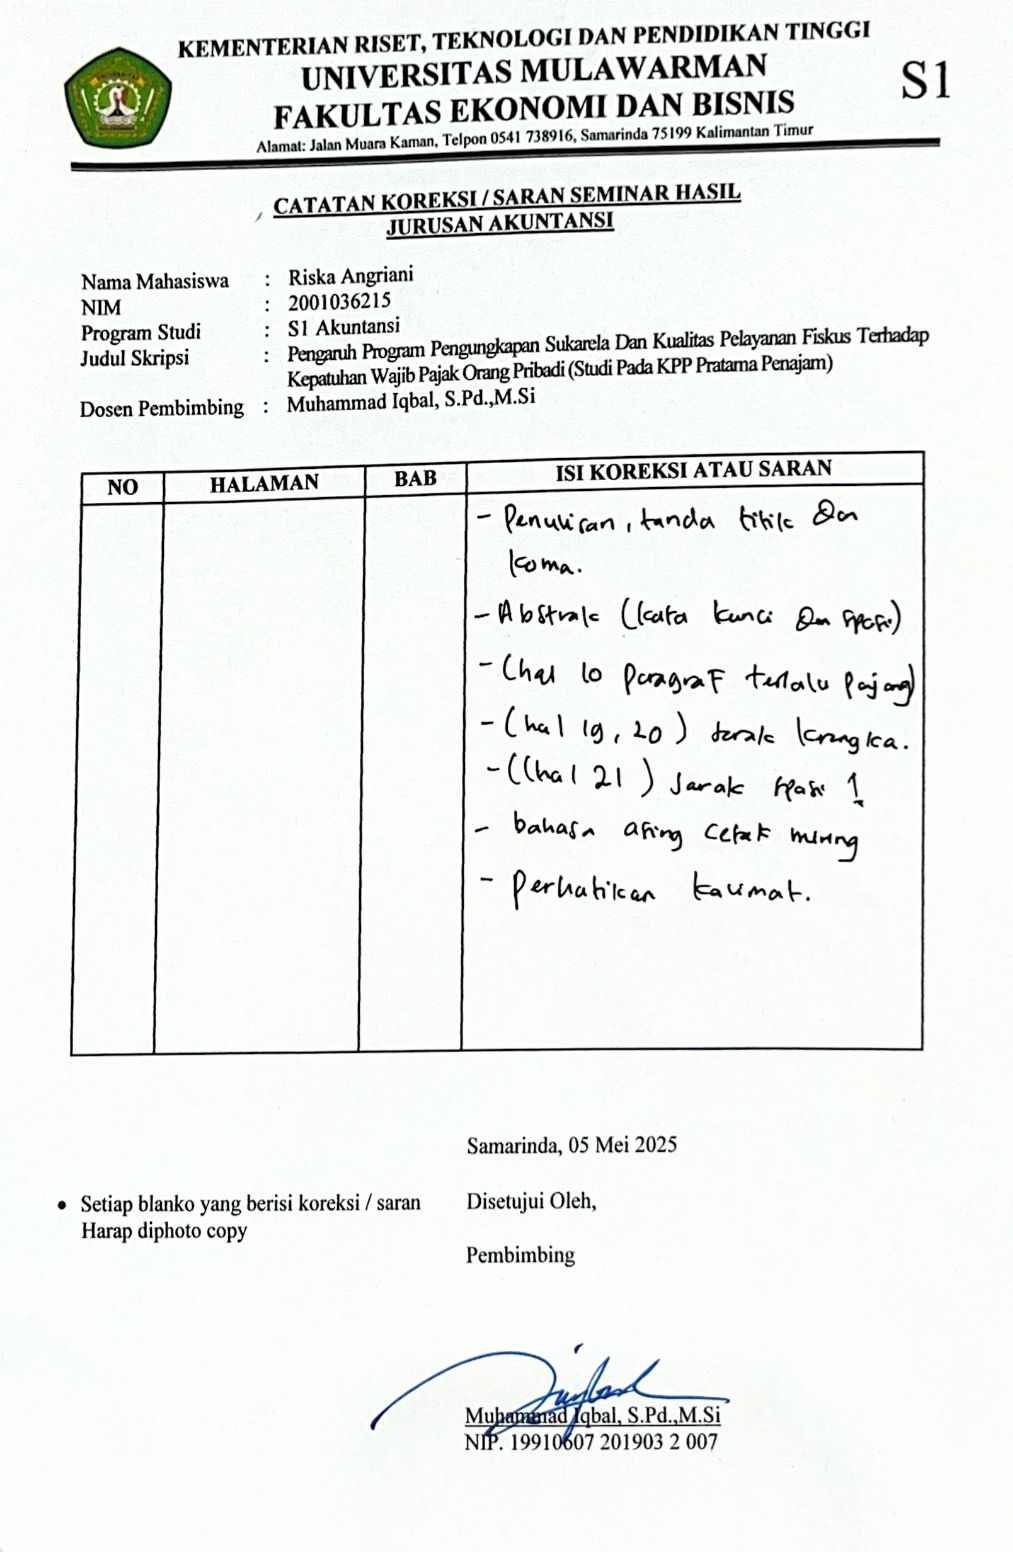 KEMENTERIAN RISET, TEKNOLOGI DAN PENDIDIKAN TINGGI
UNIVERSITAS MULAWARMAN
FAKULTAS EKONOMI DAN BISNIS
S1
Alamat: Jalan Muara Kaman, Telpon 0541 738916, Samarinda 75199 Kalimantan Timur
CATATAN KOREKSI / SARAN SEMINAR HASIL
JURUSAN AKUNTANSI
Nama Mahasiswa : Riska Angriani
NIM : 2001036215
Program Studi : S1 Akuntansi
Judul Skripsi : Pengaruh Program Pengungkapan Sukarela Dan Kualitas Pelayanan Fiskus Terhadap
Kepatuhan Wajib Pajak Orang Pribadi (Studi Pada KPP Pratama Penajam)
Dosen Pembimbing : Muhammad Iqbal, S.Pd.,M.Si
NO HALAMAN BAB ISI KOREKSI ATAU SARAN
- Penulisan, tanda titik dan
koma.
- Abstrak (kata kunci dan spasi)
- (hal 10 paragraf terlalu pajang)
- (hal 19, 20) krangka.
- ((hal 21) Jarak spasi 1
- bahasa asing cetak miring
- Perhatikan kalimat.
Samarinda, 05 Mei 2025
• Setiap blanko yang berisi koreksi / saran
Harap diphoto copy
Disetujui Oleh,
Pembimbing
Muhammad Iqbal, S.Pd.,M.Si
NIP. 19910607 201903 2 007